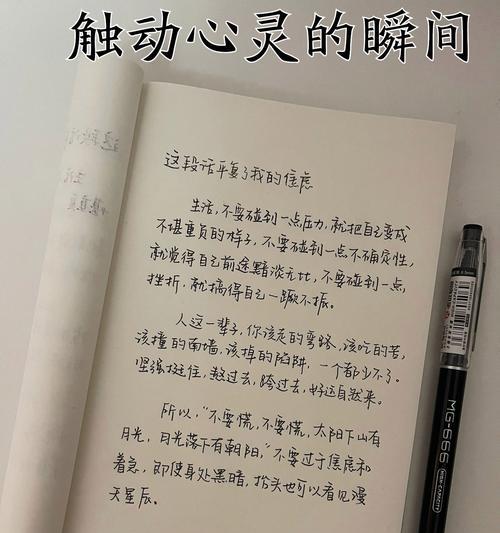 触动心灵的瞬间
这段话平复了我的焦虑
生活,不要碰到一点压力,就把自己变成
不堪重负的样子,不要碰到一点不确定性,
就觉得自己前途黯淡无比,不要碰到一点
挫折,就搞得自己一蹶不振。
人这一辈子,你该走的弯路,该吃的苦,
该撞的南墙,该掉的陷阱,一个都少不了。
坚强挺住,熬过去,跨过去,好运自然来。
所以,“不要慌,不要慌,太阳下山有
月光,月光落下有朝阳,”不要过于焦虑和
着急,即使身处黑暗,抬头也可以看见漫
天星辰。
MG-666
HIGH-CAPACITY